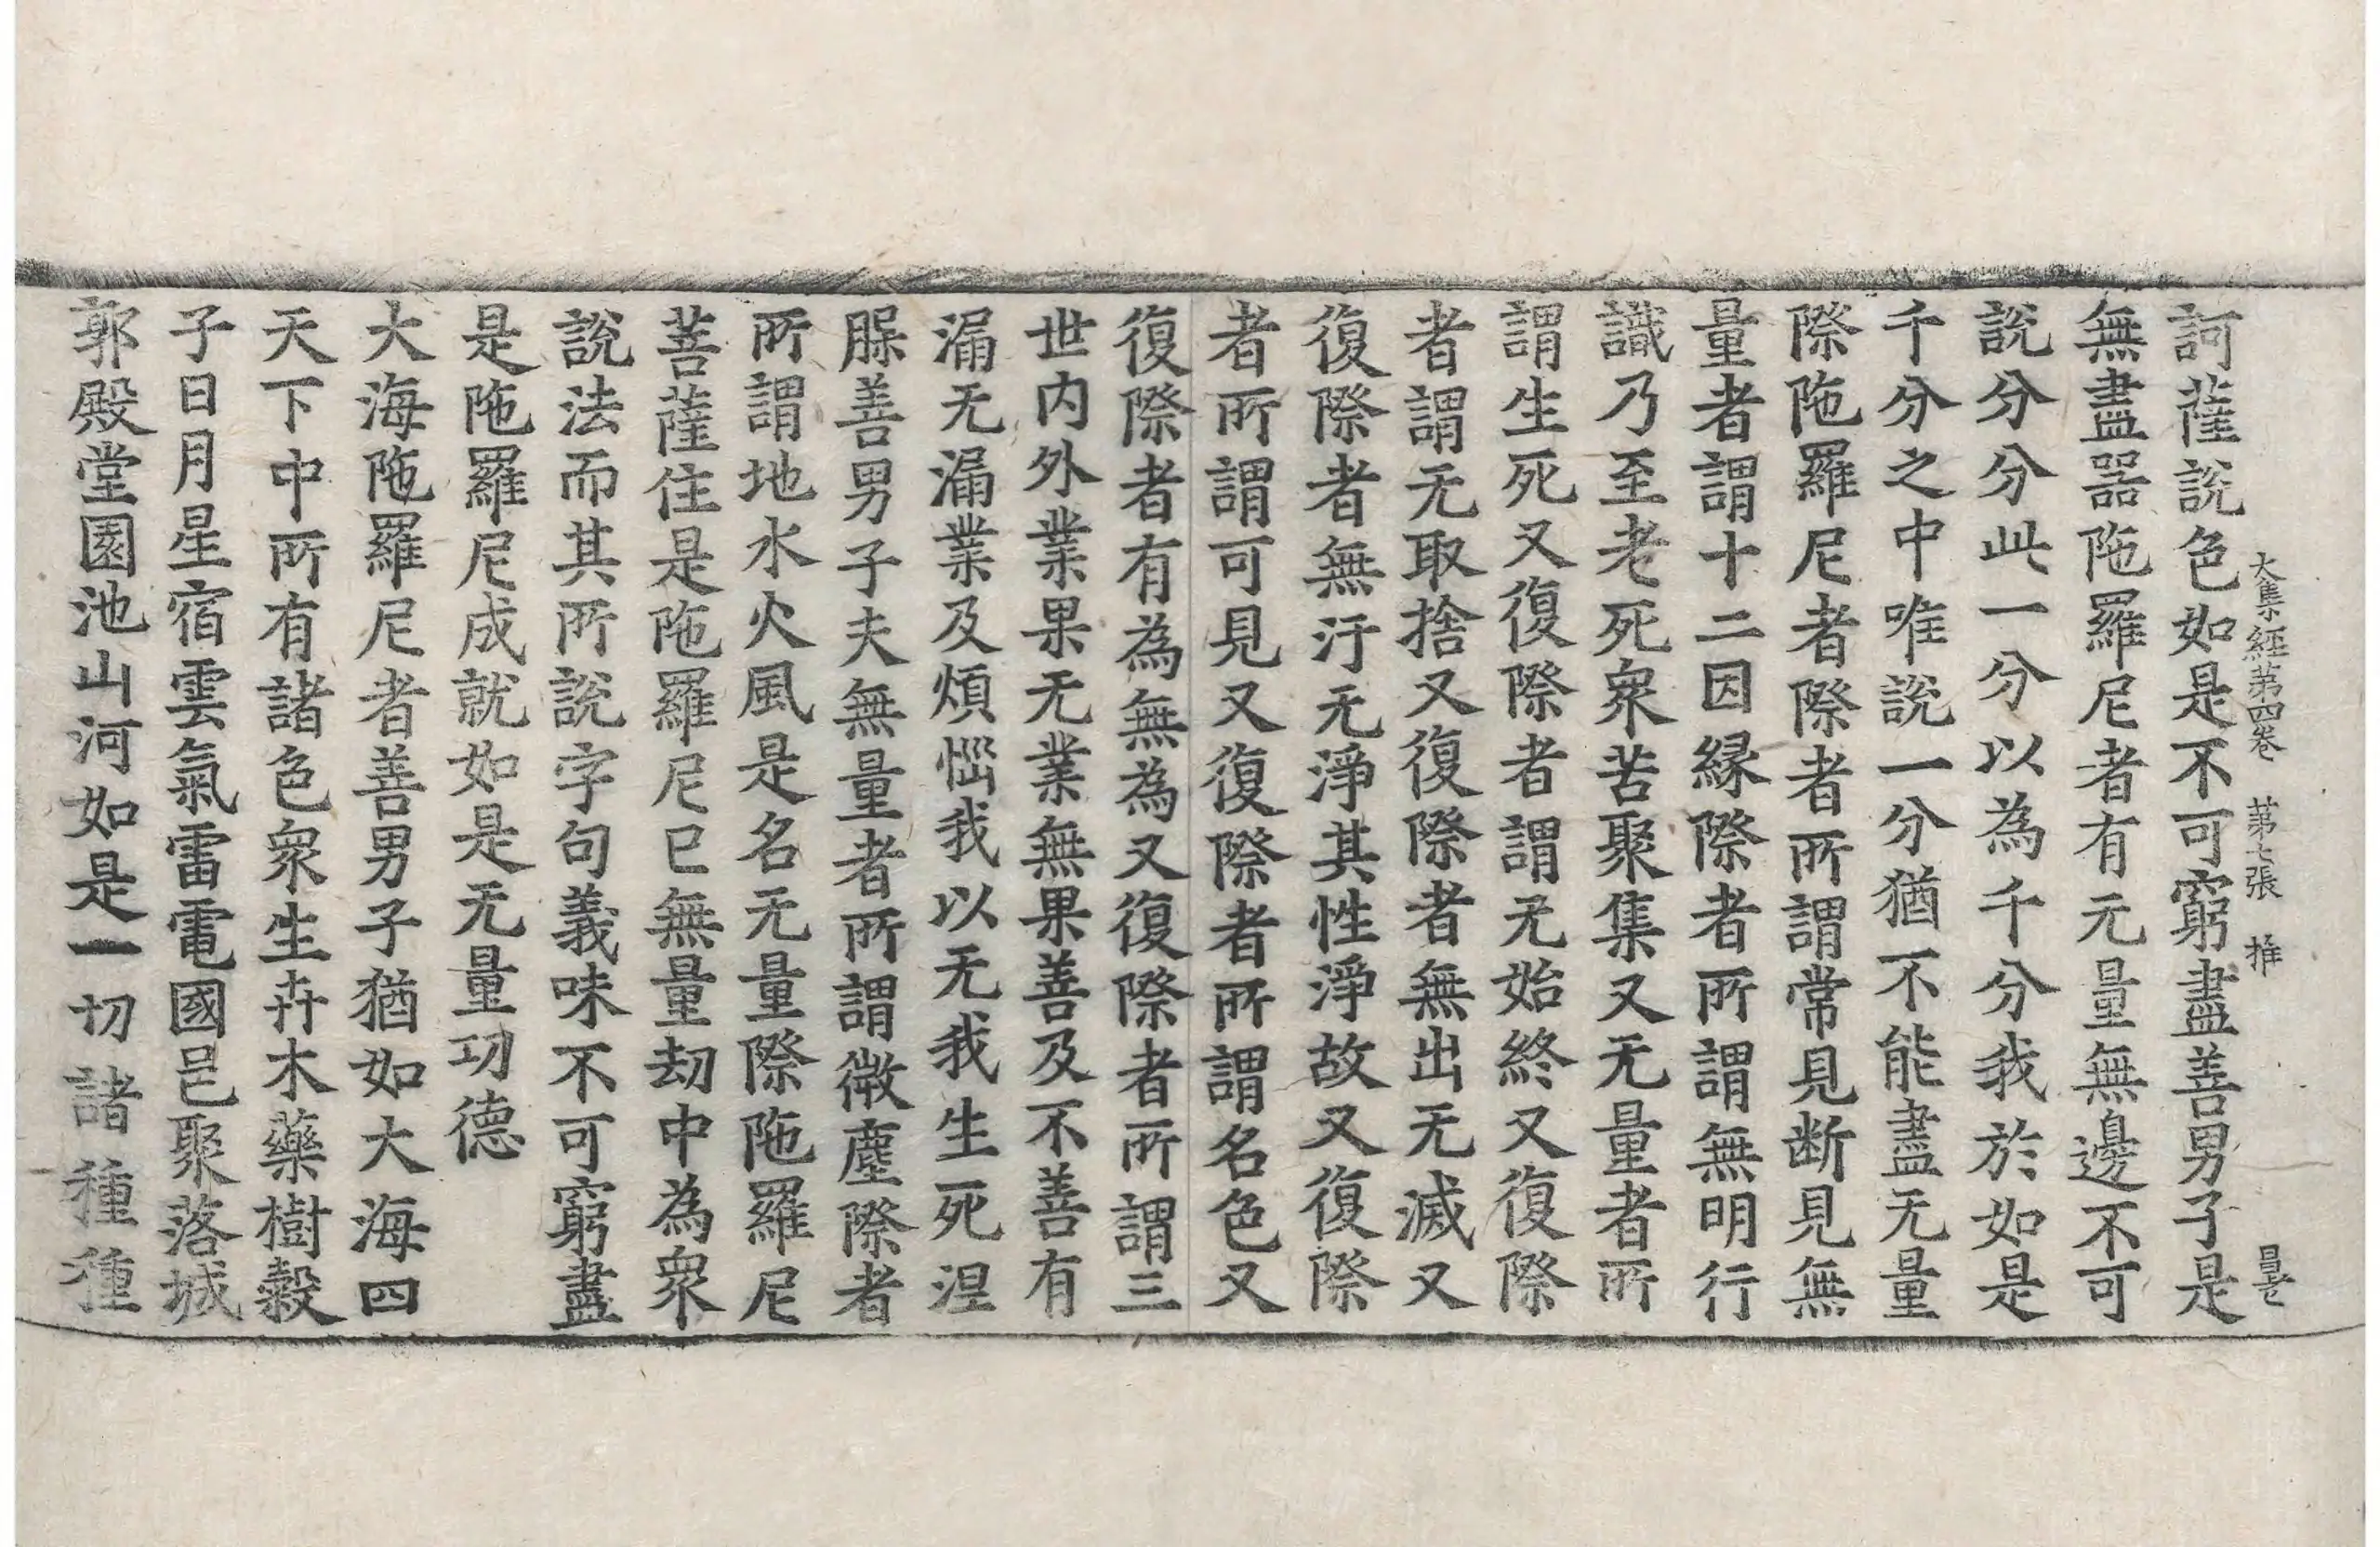 大集經第四卷　第七張　推　昌老
訶薩說色如是不可窮盡善男子是
無盡器陁羅尼者有无量無邊不可
說分分此一分以為千分我於如是
千分之中唯說一分猶不能盡无量
際陁羅尼者際者所謂常見断見無
量者謂十二因縁際者所謂無明行
識乃至老死衆苦聚集又无量者所
謂生死又復際者謂无始終又復際
者謂无取捨又復際者無出无滅又
復際者無汙无淨其性淨故又復際
者所謂可見又復際者所謂名色又
復際者有為無為又復際者所謂三
世内外業果无業無果善及不善有
漏无漏業及煩惱我以无我生死涅
脲善男子夫無量者所謂微塵際者
所謂地水火風是名无量際陁羅尼
菩薩住是陁羅尼已無量劫中為衆
說法而其所說字句義味不可窮盡
是陁羅尼成就如是无量功德
大海陁羅尼者善男子猶如大海四
天下中所有諸色衆生卉木藥樹穀
子日月星宿雲氣雷電國邑聚落城
郭殿堂園池山河如是一切諸種種